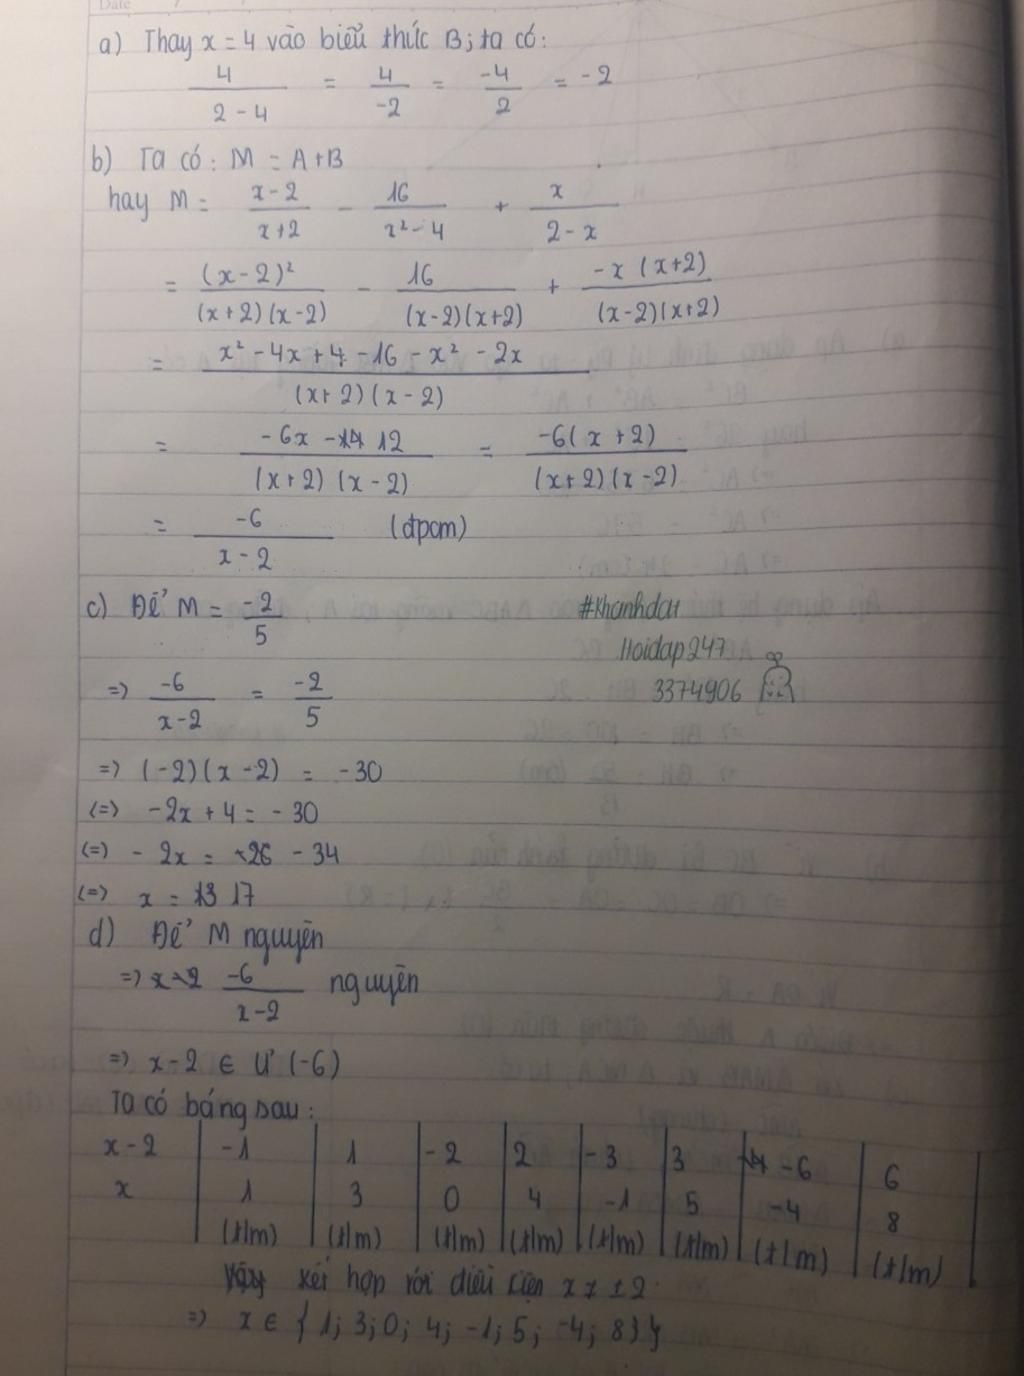 Date
a) Thay x = 4 vào biểu thức B; ta có:
4/(2 - 4) = 4/-2 = -4/2 = -2
b) Ta có: M = A + B
hay M = (x-2)/(x+2) - 16/(x² - 4) + x/(2 - x)
= (x-2)²/((x+2)(x-2)) - 16/((x-2)(x+2)) + -x(x+2)/((x-2)(x+2))
= (x² - 4x + 4 - 16 - x² - 2x)/((x+2)(x-2))
= (-6x - 12)/((x+2)(x-2)) = -6(x+2)/((x+2)(x-2))
= -6/(x-2) (đpcm)
c) Để M = -2/5
#Khanhdar
Hoidap247
=> -6/(x-2) = -2/5
3374906
=> (-2)(x-2) = -30
(=) -2x + 4 = -30
(=) -2x = -26 -34
(=) x = 13 17
d) Để M nguyên
=> x-2 -6/(x-2) nguyên
=> x-2 ∈ Ư(-6)
Ta có bảng sau:
x-2 | -1 | 1 | -2 | 2 | -3 | 3 | -6 | 6
x | 1 | 3 | 0 | 4 | -1 | 5 | -4 | 8
(t/m) | (t/m) | (t/m) | (t/m) | (t/m) | (t/m) | (t/m) | (t/m)
Vậy kết hợp với điều kiện x ≠ ±2
=> x ∈ {1; 3; 0; 4; -1; 5; -4; 8}